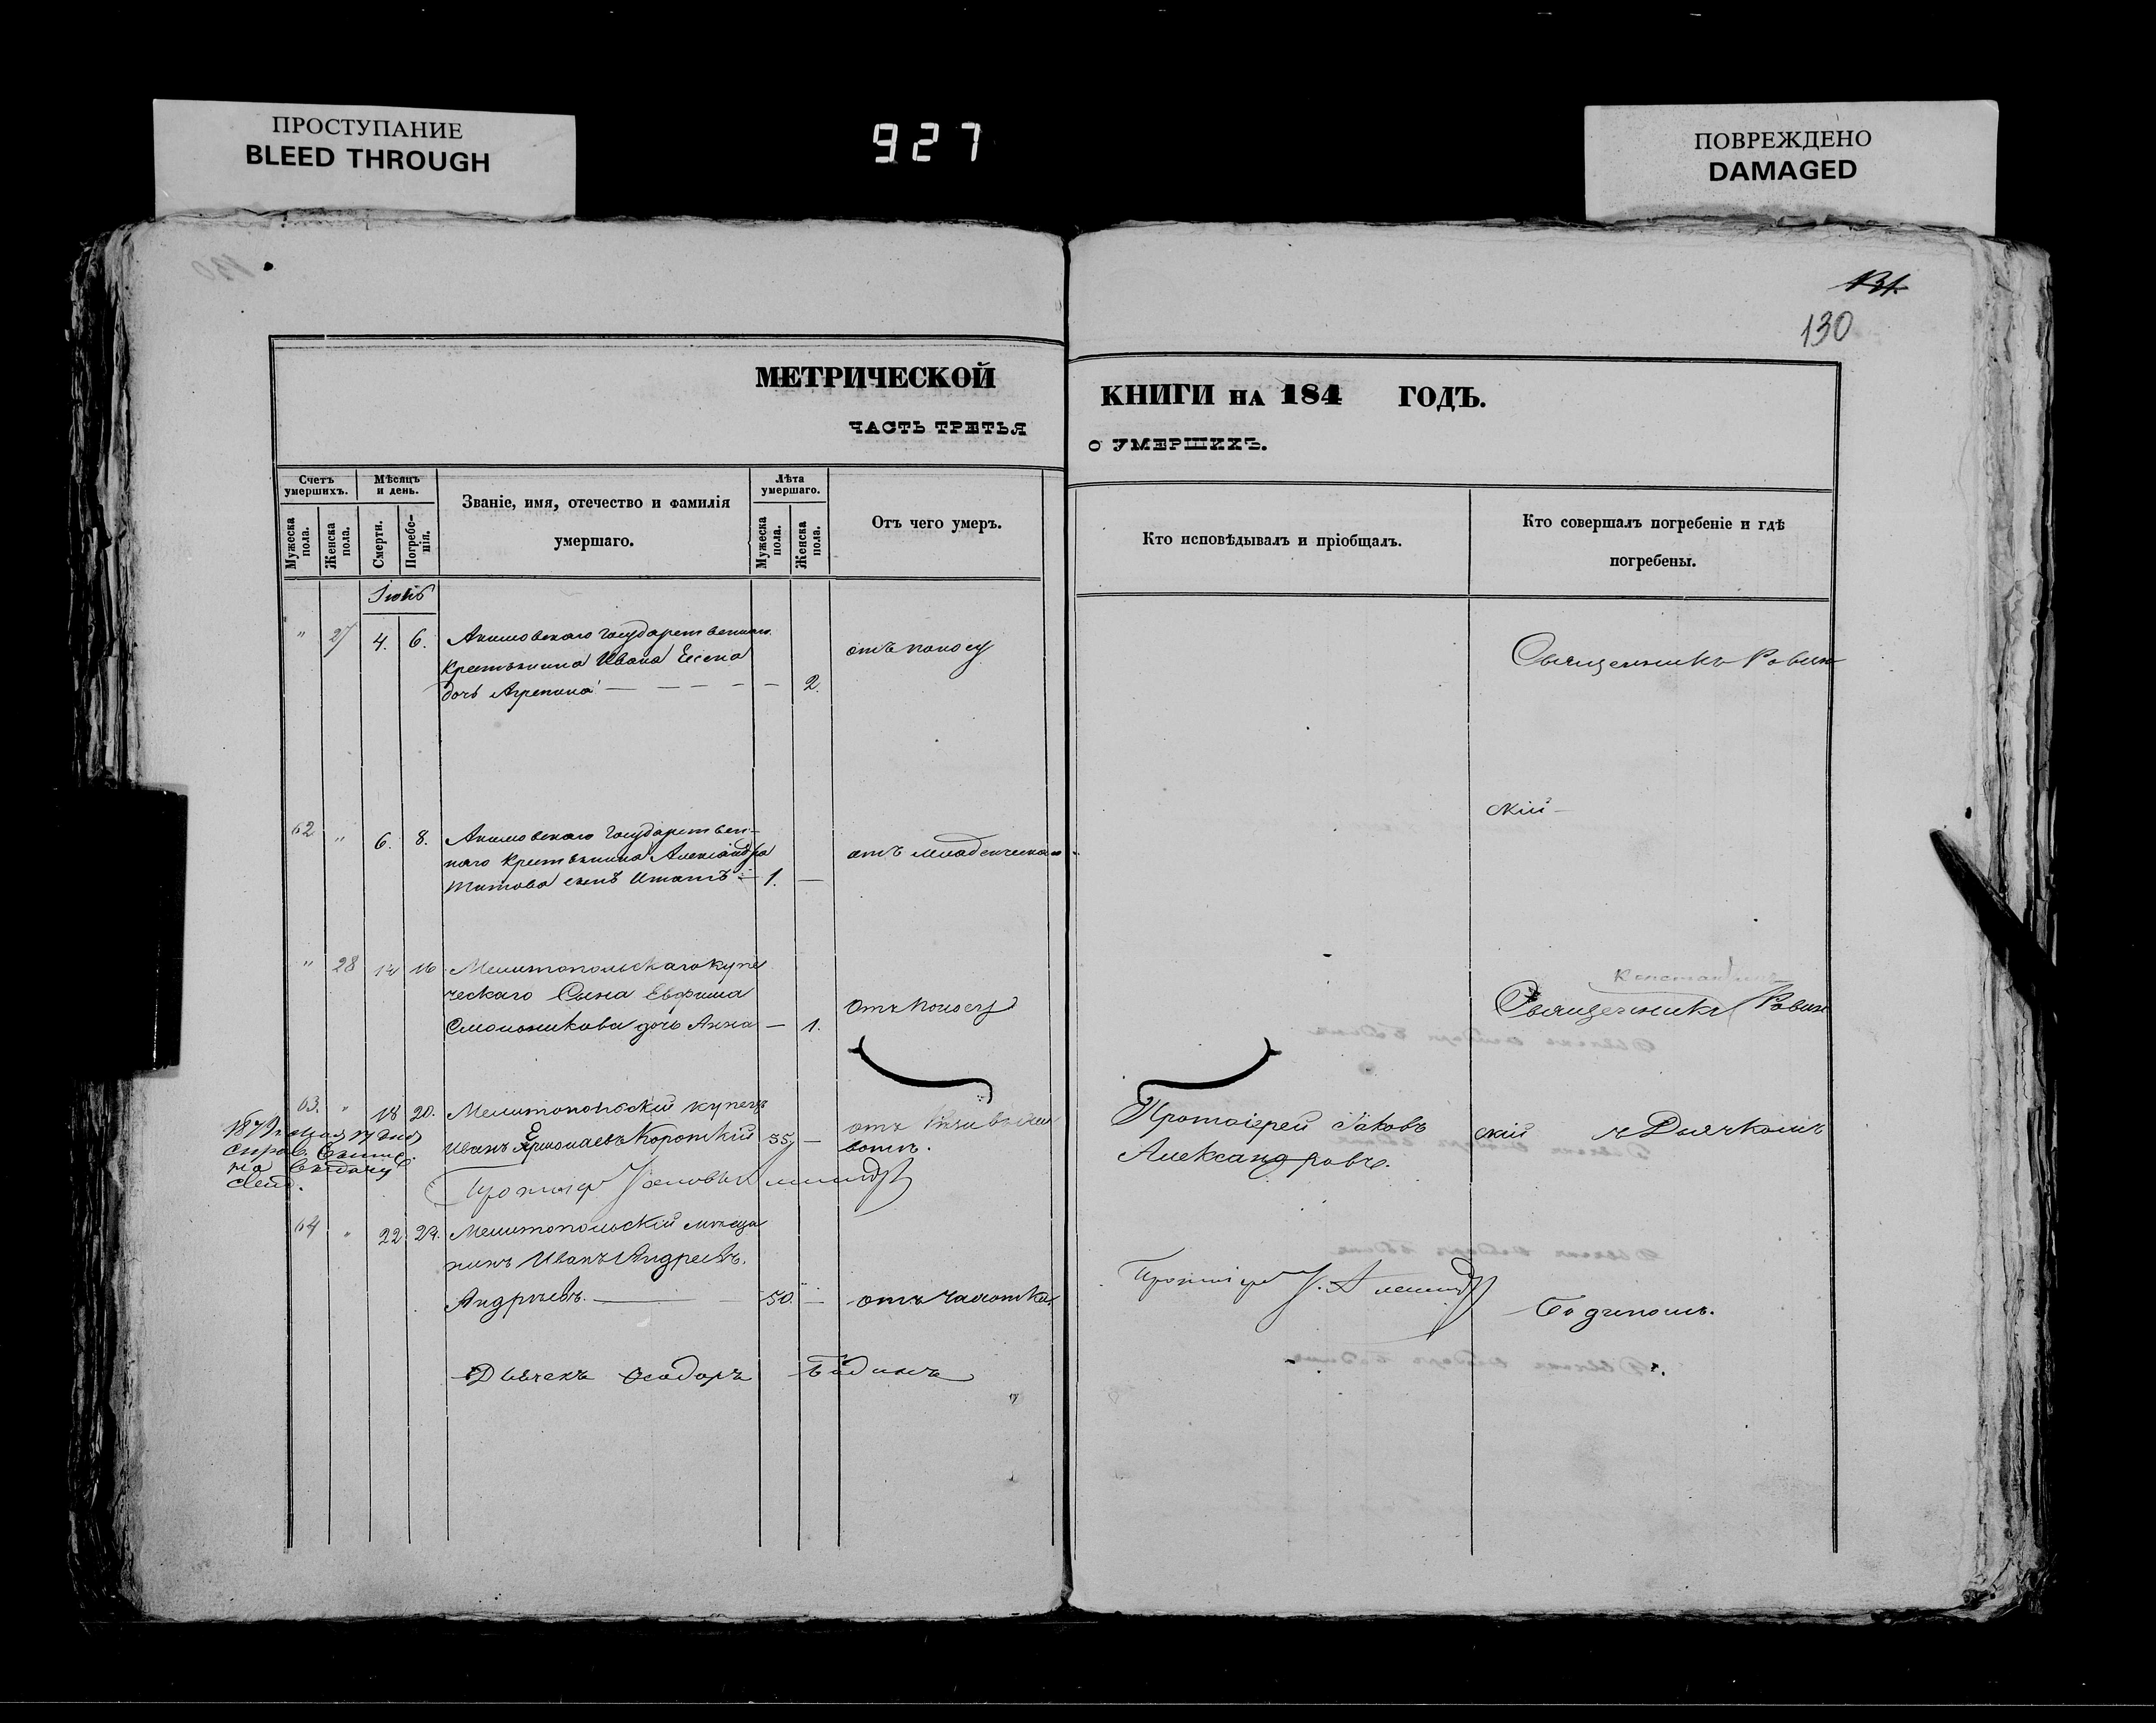 ПРОСТУПАНИЕ
BLEED THROUGH
927
ПОВРЕЖДЕНО
DAMAGED
131.
130
МЕТРИЧЕСКОЙ
КНИГИ НА 184 ГОДЪ.
ЧАСТЬ ТРЕТЬЯ
О УМЕРШИХЪ.
Счетъ умершихъ.
Мужеска пола.
Женска пола.
Мѣсяцъ и день.
Смерти.
Погребе-
нія.
Званіе, имя, отечество и фамилія
умершаго.
Лѣта умершаго.
Мужеска пола.
Женска пола.
Отъ чего умеръ.
Кто исповѣдывалъ и пріобщалъ.
Кто совершалъ погребеніе и гдѣ
погребены.
" 27 4. 6. Акимовскаго Государственнаго
Крестьянина Ивана
дочь Агрепина — 2.
отъ поносу
Священникъ Ровин
скій
62 " 6. 8. Акимовскаго Государствен-
наго Крестьянина Александра
Титова сынъ — 1. —
отъ младенческаго
" 28 14 16 Мелитопольскаго купе
ческаго Сына Евфима
дочь Анна — 1.
Отъ поносу
Константинъ
Священникъ Ровин
63. " 18 20. Мелитопольскій купецъ
Иванъ Ермолаевъ Короткій 35 —
вотъ.
Протоіерей Іаковъ
Александровъ.
скій съ Дьячкомъ
Бодиномъ.
на выдачу
свид.
64 " 22 24. Мелитопольскій мѣща
нинъ Иванъ Андреевъ.
Андреевъ. — 50. — отъ чахотки
Дьячекъ Ѳеодоръ Бодинъ